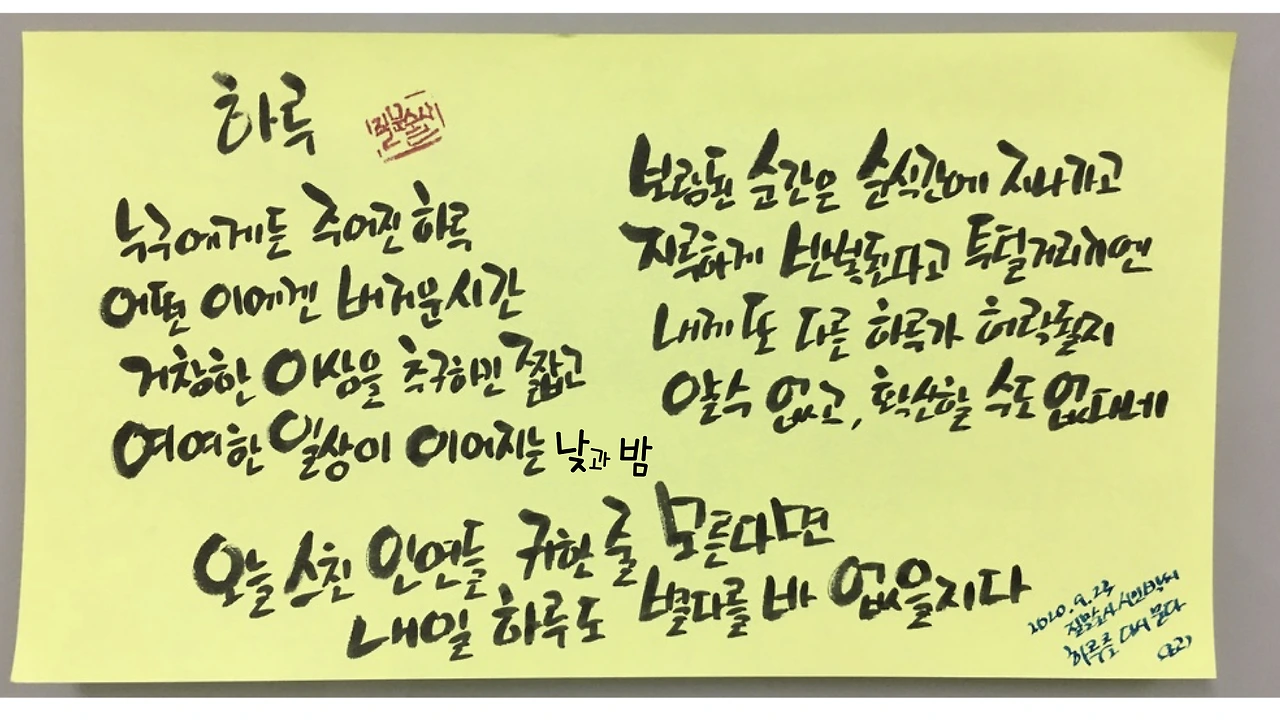 하루
질문술사
누구에게든 주어진 하루
어떤 이에겐 버거운 시간
거창한 이상을 추구하긴 짧고
여여한 일상이 이어지는 낮과 밤
보람된 순간은 순식간에 지나가고
지루하게 반복된다고 투덜거리지만
내게 또 다른 하루가 허락될지
알 수 없고, 확신할 수도 없다네
오늘 스친 인연들 귀한 줄 모른다면
내일 하루도 별다를 바 없을지다
2020. 9. 24
질문술사 시인박씨
하루를 다시 묻다